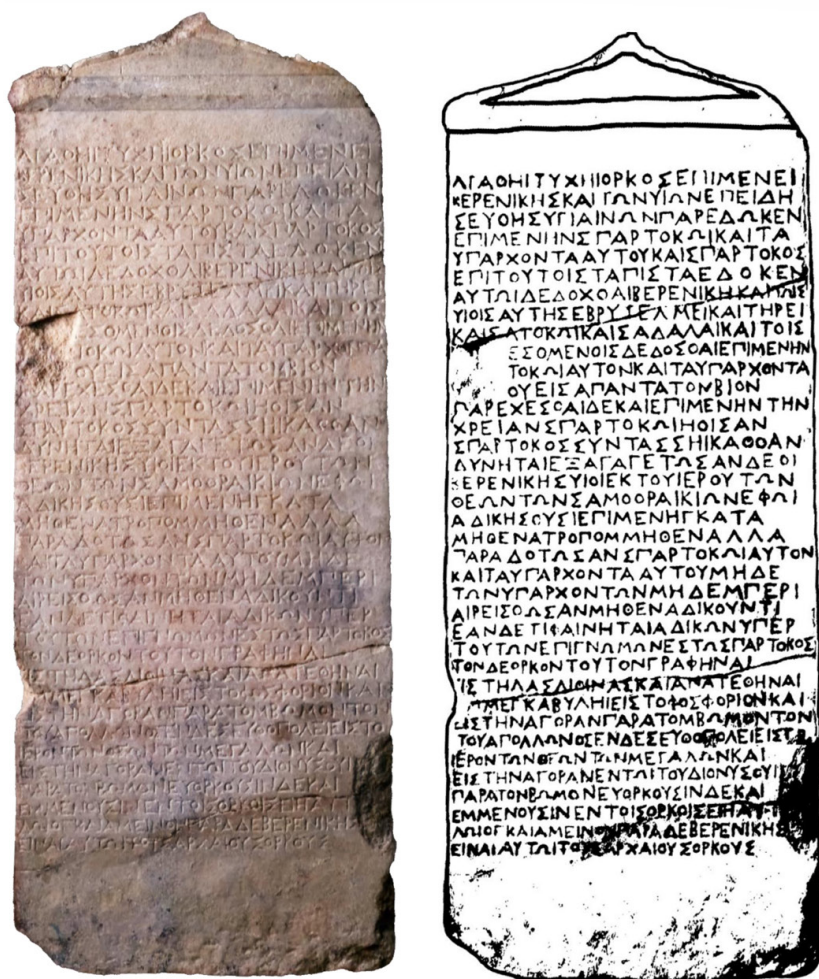 ΑΓΑΘΗΙΤΥΧΗΙΟΡΚΟΣΕΠΙΜΕΝΕΙ
ΒΕΡΕΝΙΚΗΣΚΑΙΤΩΝΥΙΩΝΕΠΕΙΔΗ
ΣΕΥΘΗΣΥΓΙΑΙΝΩΝΠΑΡΕΔΩΚΕΝ
ΕΠΙΜΕΝΗΝΣΠΑΡΤΟΚΩΙΚΑΙΤΑ
ΥΠΑΡΧΟΝΤΑΑΥΤΟΥΚΑΙΣΠΑΡΤΟΚΟΣ
ΕΠΙΤΟΥΤΟΙΣΤΑΠΙΣΤΑΕΔΟΚΕΝ
ΑΥΤΩΙΔΕΔΟΧΘΑΙΒΕΡΕΝΙΚΗΚΑΙΤΟΙΣ
ΥΙΟΙΣΑΥΤΗΣΕΒΡΥΖΕΛΜΕΙΚΑΙΤΗΡΕΙ
ΚΑΙΣΑΤΟΚΩΙΚΑΙΣΑΔΑΛΑΙΚΑΙΤΟΙΣ
ΕΣΟΜΕΝΟΙΣΔΕΔΟΣΘΑΙΕΠΙΜΕΝΗΝ
ΤΟΚΩΙΑΥΤΟΝΚΑΙΤΑΥΠΑΡΧΟΝΤΑ
ΟΥΕΙΣΑΠΑΝΤΑΤΟΝΒΙΟΝ
ΠΑΡΕΧΕΣΘΑΙΔΕΚΑΙΕΠΙΜΕΝΗΝΤΗΝ
ΧΡΕΙΑΝΣΠΑΡΤΟΚΩΙΗΟΙΣΑΝ
ΣΠΑΡΤΟΚΟΣΣΥΝΤΑΣΣΗΙΚΑΘΟΑΝ
ΔΥΝΗΤΑΙΕΞΑΓΑΓΕΤΩΣΑΝΔΕΟΙ
ΒΕΡΕΝΙΚΗΣΥΙΟΙΕΚΤΟΥΙΕΡΟΥΤΩΝ
ΘΕΩΝΤΩΝΣΑΜΟΘΡΑΙΚΙΩΝΕΦΩΙ
ΑΔΙΚΗΣΟΥΣΙΕΠΙΜΕΝΗΓΚΑΤΑ
ΜΗΘΕΝΑΤΡΟΠΟΜΜΗΘΕΝΑΛΛΑ
ΠΑΡΑΔΟΤΩΣΑΝΣΠΑΡΤΟΚΩΙΑΥΤΟΝ
ΚΑΙΤΑΥΠΑΡΧΟΝΤΑΑΥΤΟΥΜΗΔΕ
ΤΩΝΥΠΑΡΧΟΝΤΩΝΜΗΔΕΜΠΕΡΙ
ΑΙΡΕΙΣΘΩΣΑΝΜΗΘΕΝΑΔΙΚΟΥΝΤΙ
ΕΑΝΔΕΤΙΦΑΙΝΗΤΑΙΑΔΙΚΩΝΥΠΕΡ
ΤΟΥΤΩΝΕΠΙΓΝΩΜΩΝΕΣΤΩΣΠΑΡΤΟΚΟΣ
ΤΟΝΔΕΟΡΚΟΝΤΟΥΤΟΝΓΡΑΦΗΝΑΙ
ΕΙΣΤΗΛΑΣΛΙΘΙΝΑΣΚΑΙΑΝΑΤΕΘΗΝΑΙ
ΜΕΓΚΑΒΥΛΗΙΕΙΣΤΟΦΩΣΦΟΡΙΟΝΚΑΙ
ΕΙΣΤΗΝΑΓΟΡΑΝΠΑΡΑΤΟΜΒΩΜΟΝΤΟΝ
ΤΟΥΑΠΟΛΛΩΝΟΣΕΝΔΕΣΕΥΘΟΠΟΛΕΙΕΙΣΤΟ
ΙΕΡΟΝΤΩΝΘΕΩΝΤΩΝΜΕΓΑΛΩΝΚΑΙ
ΕΙΣΤΗΝΑΓΟΡΑΝΕΝΤΩΙΤΟΥΔΙΟΝΥΣΟΥ
ΠΑΡΑΤΟΝΒΩΜΟΝΕΥΟΡΚΟΥΣΙΝΔΕΚΑΙ
ΕΜΜΕΝΟΥΣΙΝΕΝΤΟΙΣΟΡΚΟΙΣΕΙΗ
ΛΩΙΟΓΚΑΙΑΜΕΙΝΟΝΠΑΡΑΔΕΒΕΡΕΝΙΚΗΣ
ΕΙΝΑΙΑΥΤΩΙΤΟΥΣΑΡΧΑΙΟΥΣΟΡΚΟΥΣ